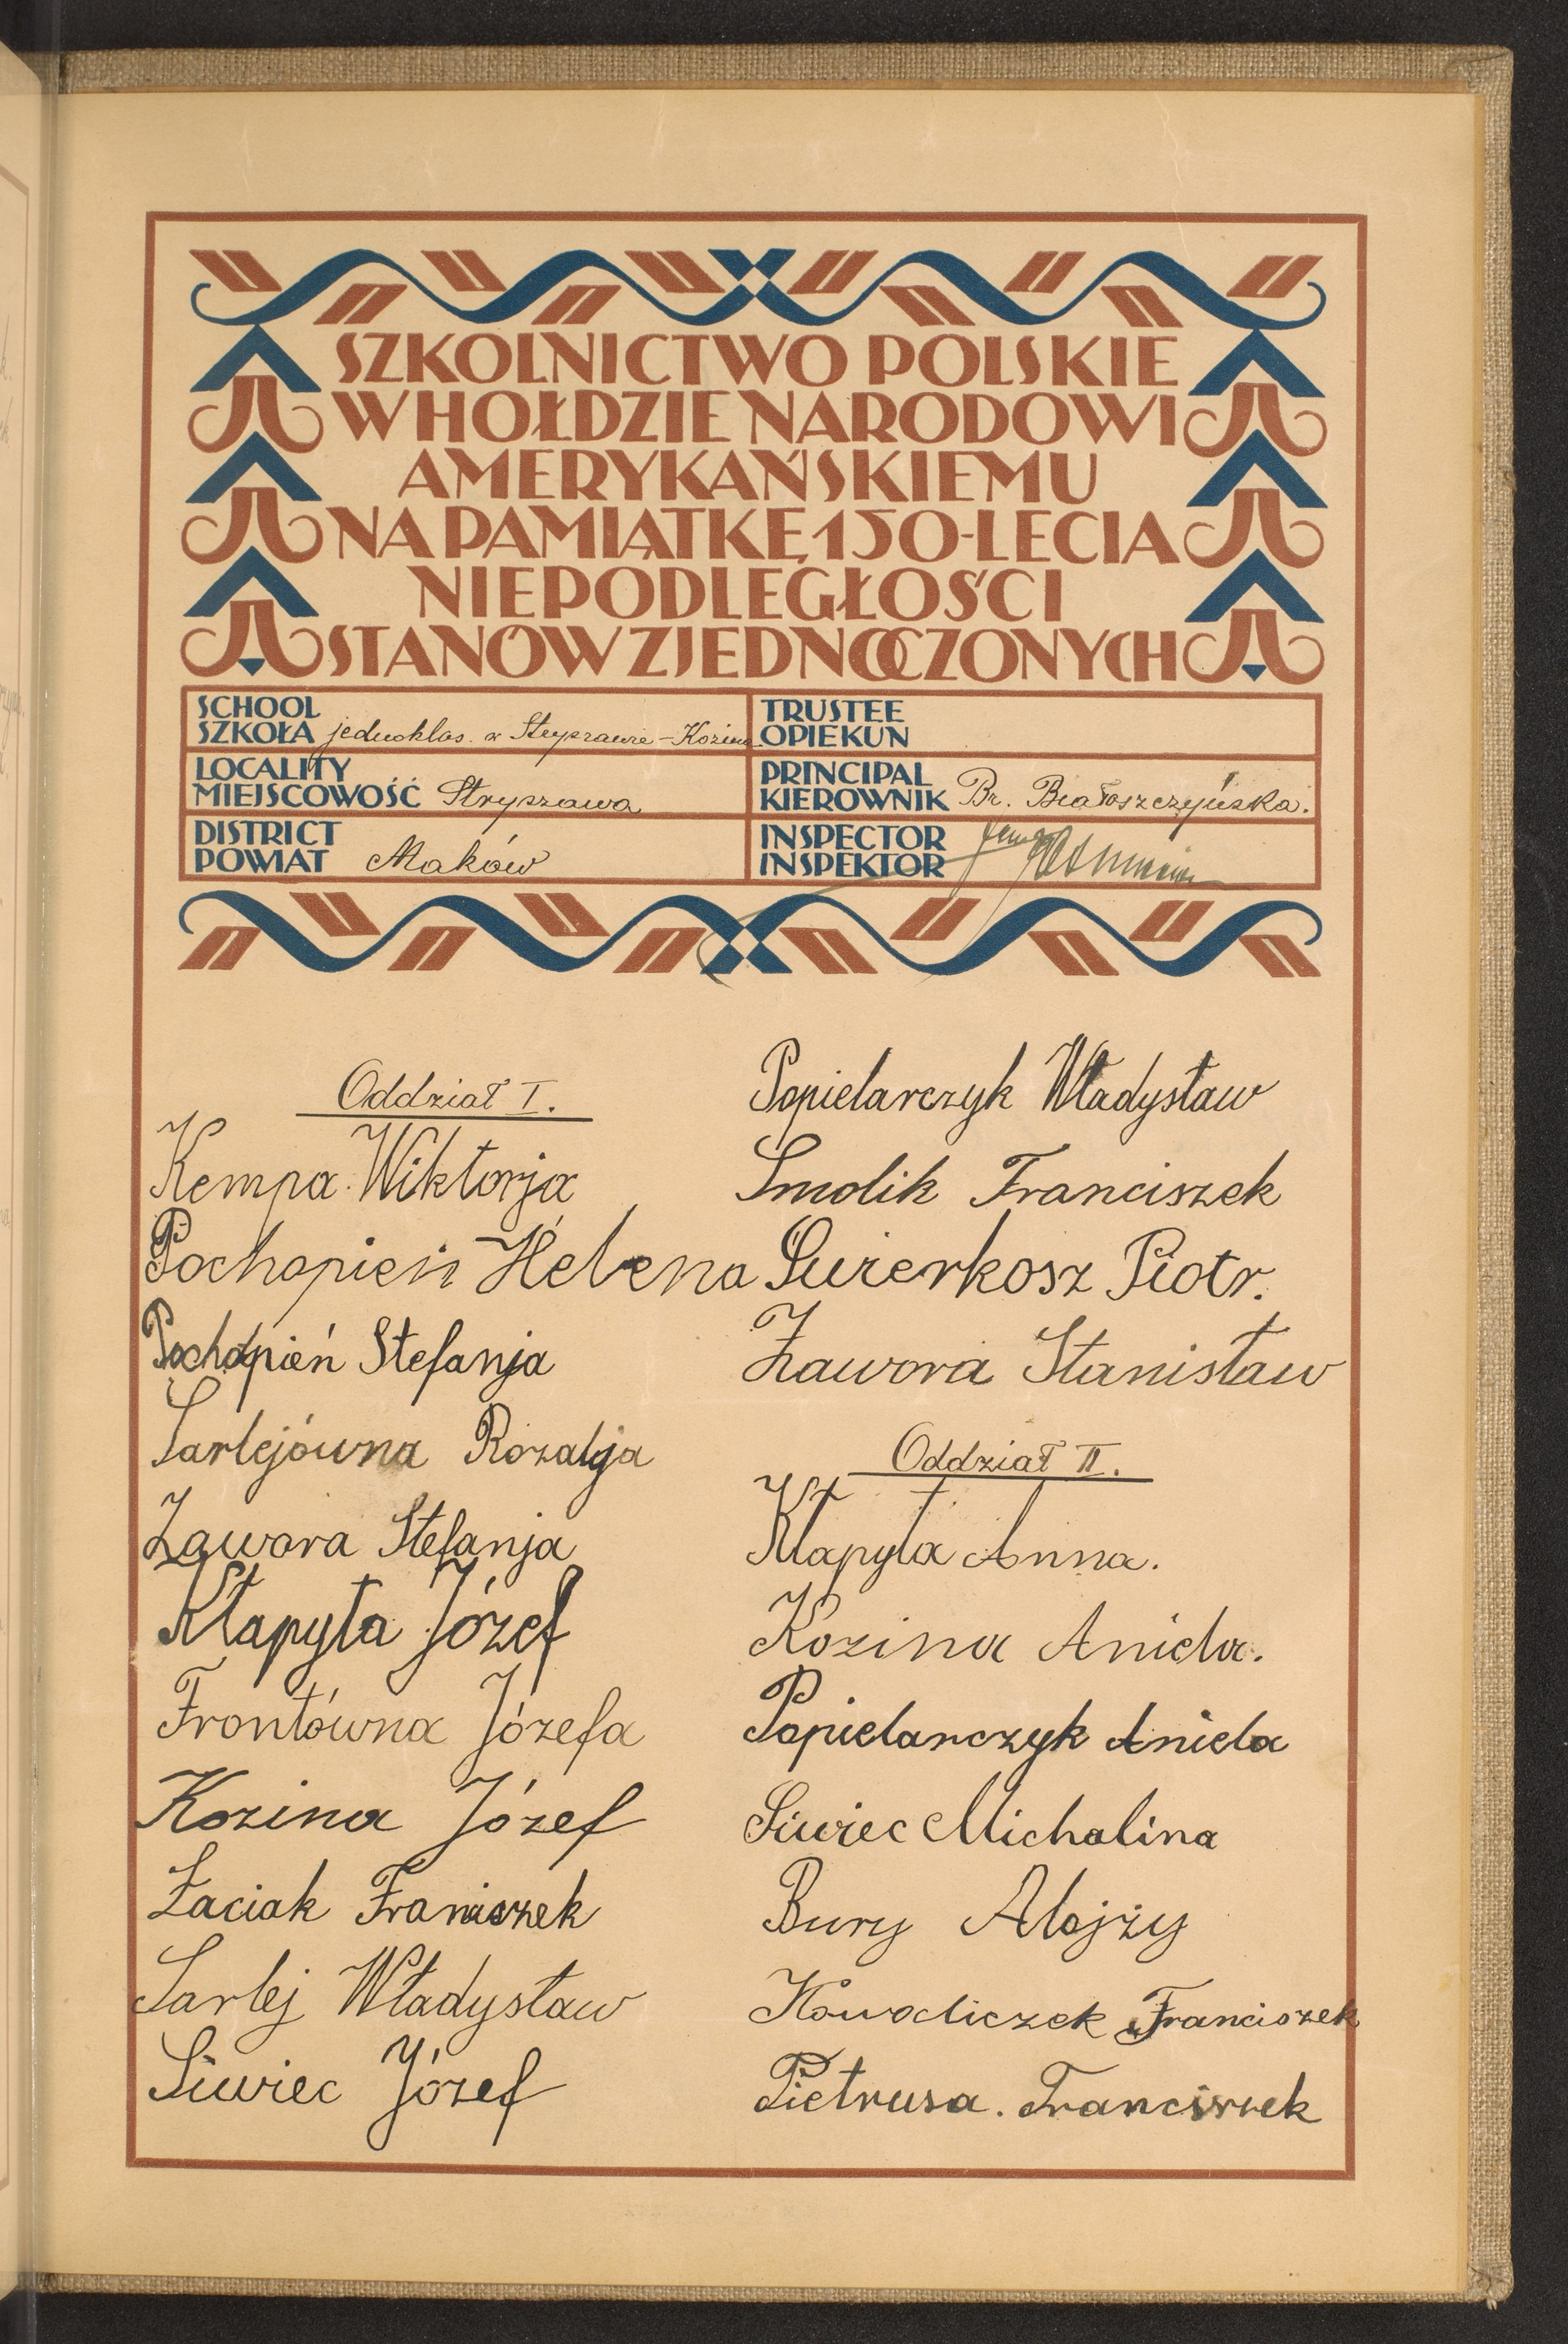 SZKOLNICTWO POLSKIE
W HOŁDZIE NARODOWI
AMERYKAŃSKIEMU
NA PAMIĄTKĘ 150-LECIA
NIEPODLEGŁOŚCI
STANÓW ZJEDNOCZONYCH
SCHOOL
SZKOŁA jednoklas. w Stryszawie - Kozina
LOCALITY
MIEJSCOWOŚĆ Stryszawa
DISTRICT
POWIAT Maków
TRUSTEE
OPIEKUN
PRINCIPAL
KIEROWNIK Br. Białoszczyńska.
INSPECTOR
INSPEKTOR
Oddział I.
Kempa Wiktorja
Pochopień Helena
Pochopień Stefanja
Sarlejówna Rozalja
Zawora Stefanja
Kłapyta Józef
Frontówna Józefa
Kozina Józef
Łaciak Franiszek
Sarlej Władysław
Siwiec Józef
Popielarczyk Władysław
Smolik Franciszek
Świerkosz Piotr.
Zawora Stanisław
Oddział II.
Kłapyta Anna.
Kozina Aniela.
Popielarczyk Aniela
Siwiec Michalina
Bury Alojzy
Kowaliczek Franciszek
Pietrusa. Franciszek